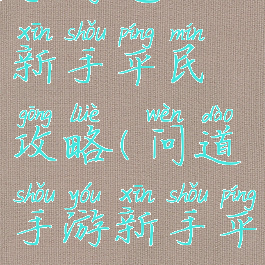 xīn shǒu píng mín
新手平民
gōng lüè wèn dào
攻略(问道
shǒu yóu xīn shǒu píng
手游新手平